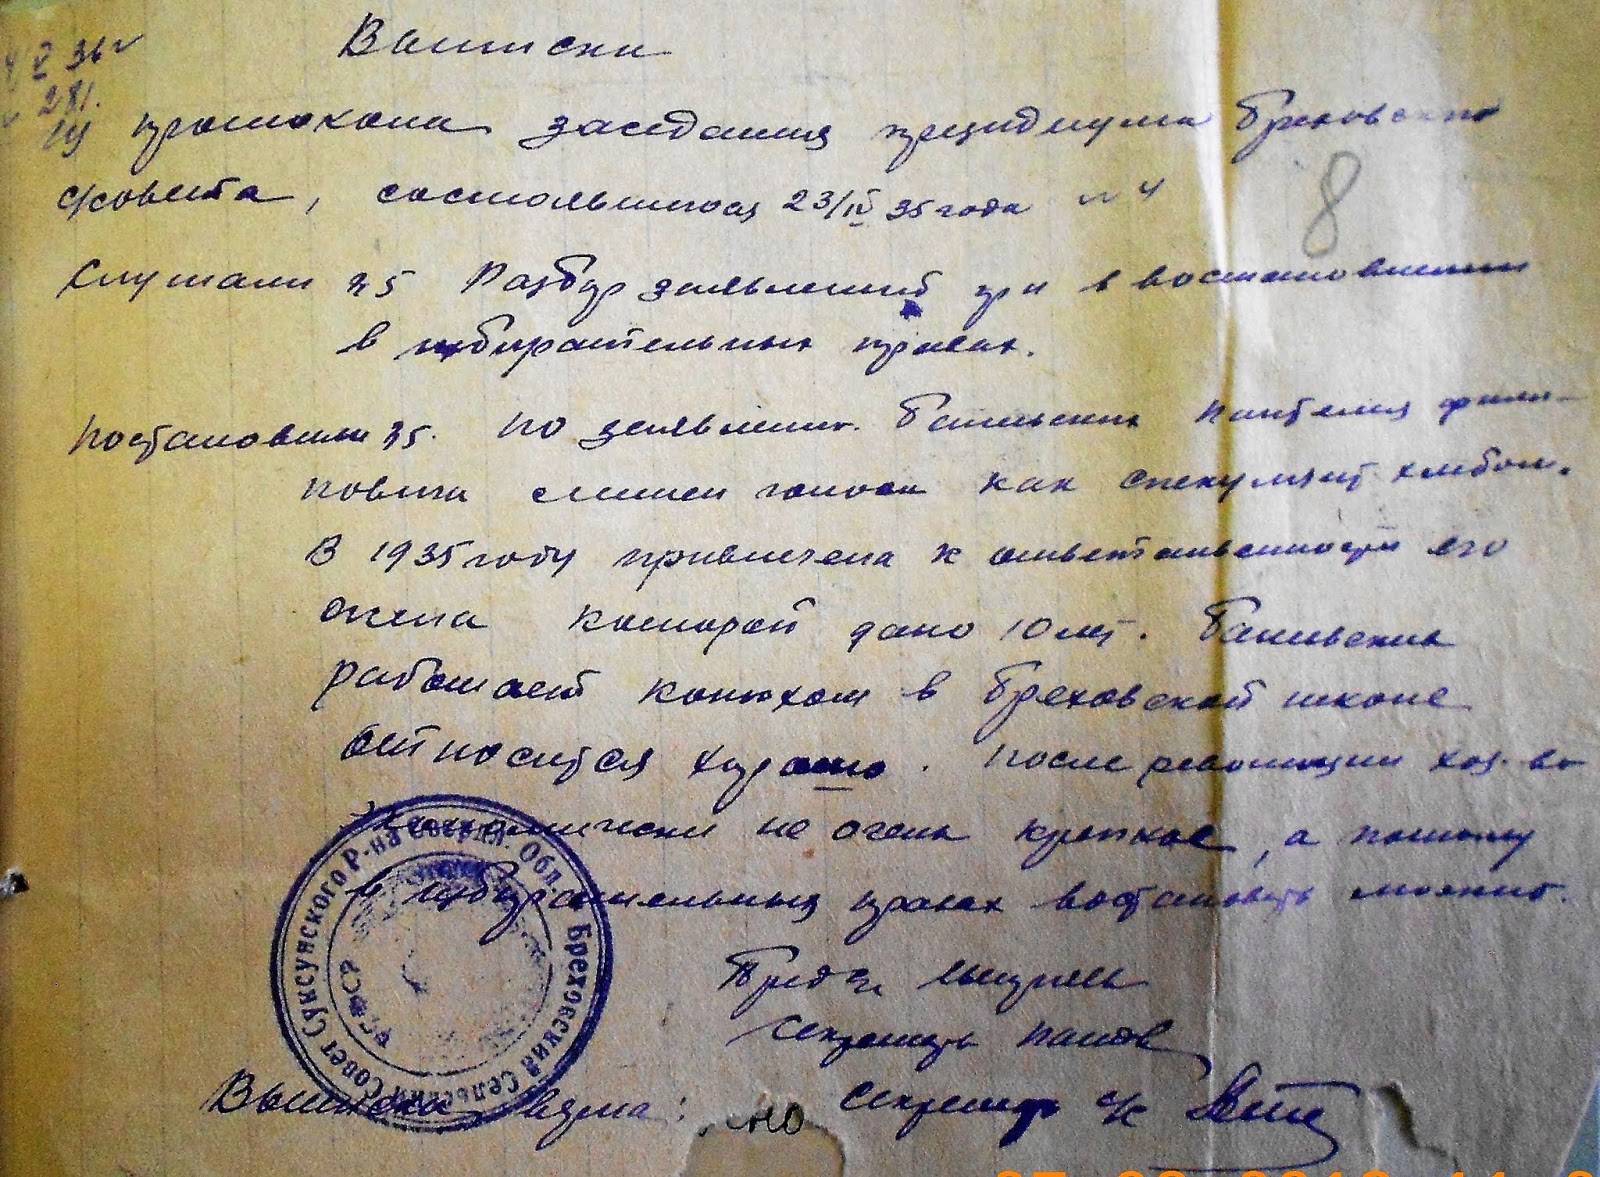 V 36 г
281.
Выписка
из протокола заседания президиума Бреховского
с/совета, состоявшегося 23/IV 35 года № 4
8
Слушали 35 Разбор заявлений при в востановлении
в избирательных правах.
Постановили 35. По заявлению. Пантелея Фили-
повича лишен голоса как спекулянт хлебом.
В 1935 году привлечена к ответственности его
жена которой дано 10 лет.
работает конюхом в Бреховской школе
относится худано. После революции хоз-во
экономически не очень крепкое, а потому
в избирательных правах востановить можно.
Предс.
Секретарь Панов
Выписка верна: Секретарь с/с
но
Бреховский Сельский Совет Суксунского Р-на Свердл. Обл.
РСФСР